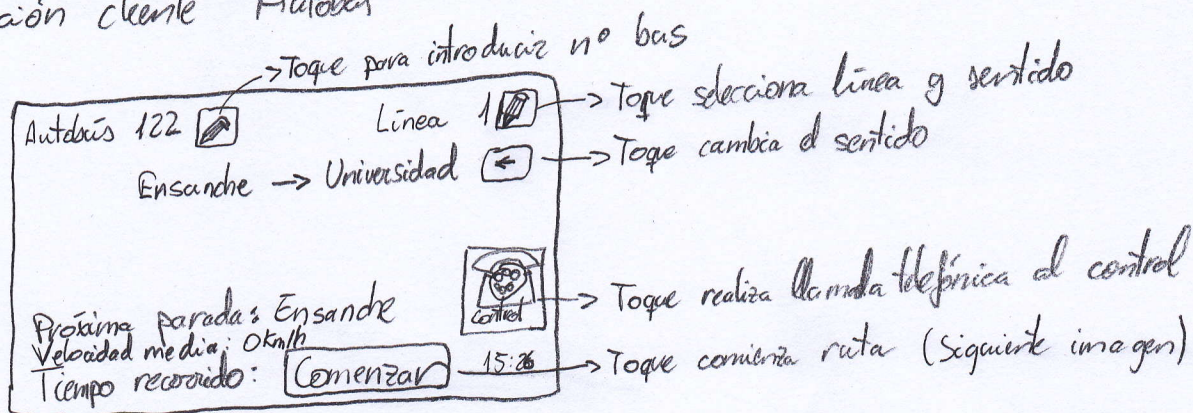 cliente
→ Toque para introducir nº bus
Autobús 122
Línea 1
→ Toque selecciona línea y sentido
Ensanche → Universidad ←
→ Toque cambia el sentido
control
→ Toque realiza llamada telefónica al control
Próxima parada: Ensanche
Velocidad media: 0km/h
Tiempo recorrido: Comenzar 15:26
→ Toque comienza ruta (Siguiente imagen)